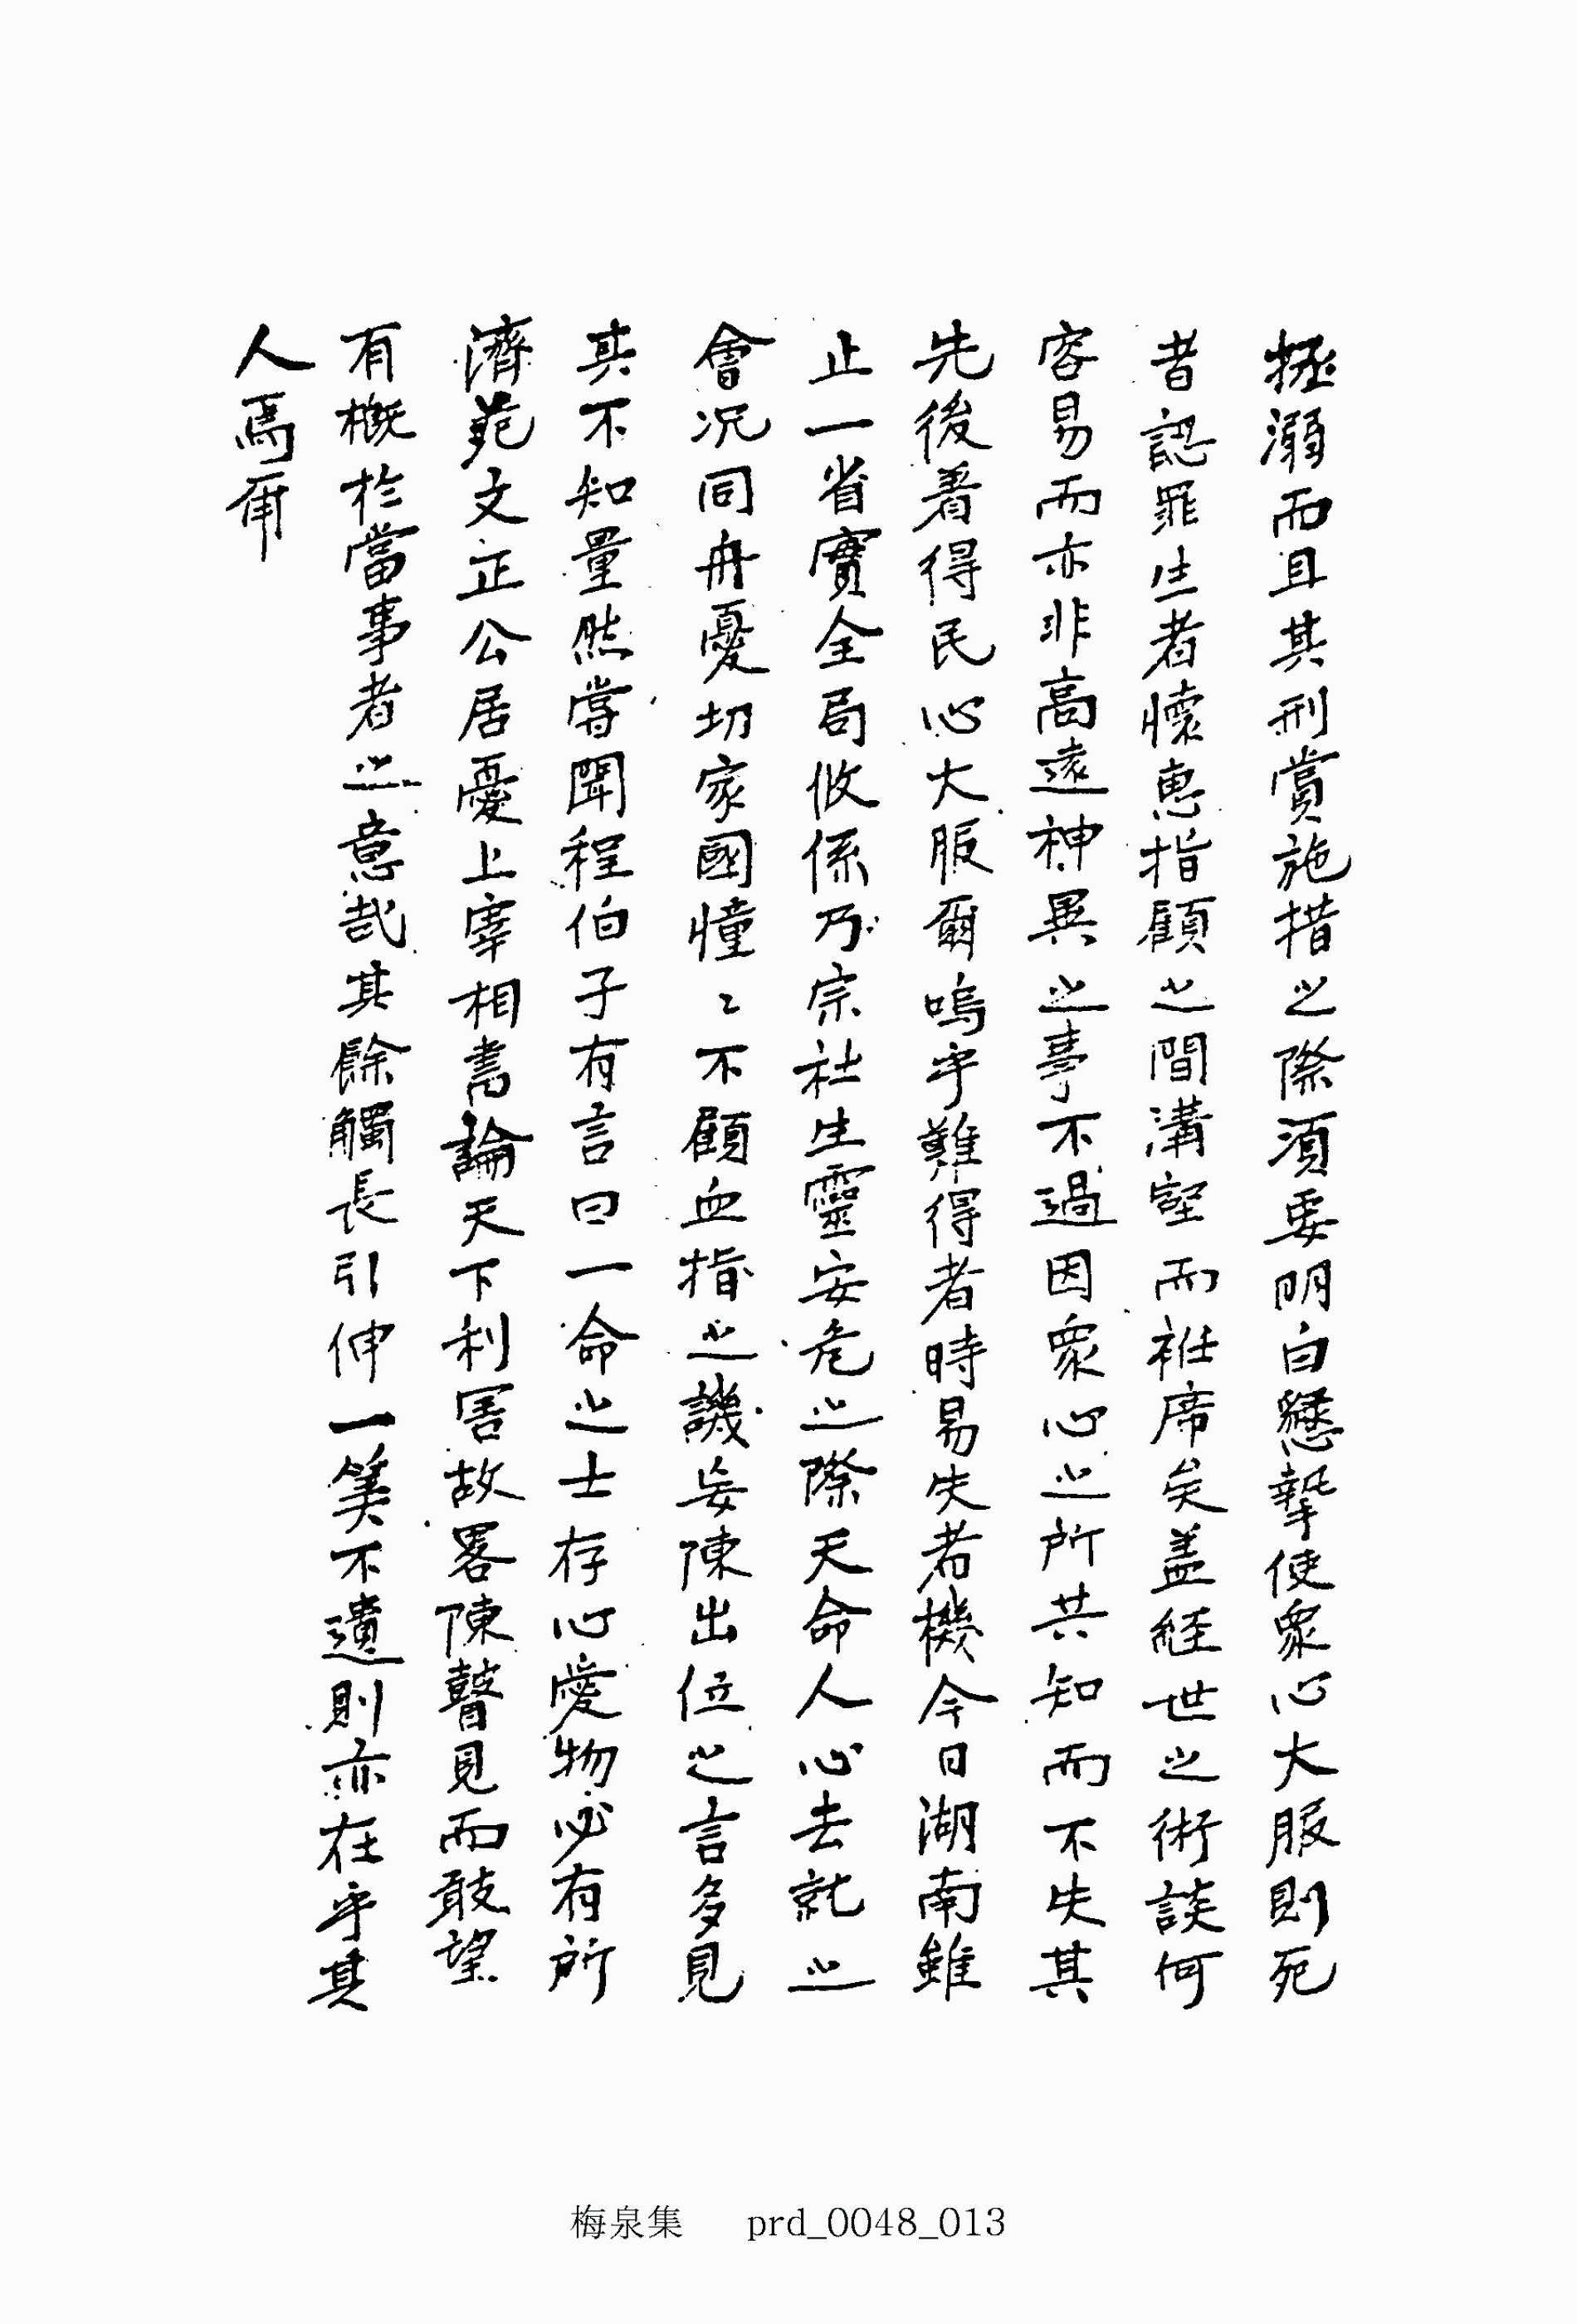 拯溺而且其刑賞施措之際須要明白懇摯使衆心大服則死
者認罪生者懷惠指顧之間溝壑而袵席矣盖經世之術談何
容易而亦非高遠神異之事不過因衆心之所共知而不失其
先後着得民心大服爾嗚乎難得者時易失者機今日湖南雖
止一省實全局攸係乃宗社生靈安危之際天命人心去就之
會况同舟憂切家國憧〻不顧血指之譏妄陳出位之言多見
其不知量然嘗聞程伯子有言曰一命之士存心愛物必有所
濟范文正公居憂上宰相書論天下利害故畧陳瞽見而敢望
有概於當事者之意哉其餘觸長引伸一美不遺則亦在乎其
人焉爾
梅泉集 prd_0048_013